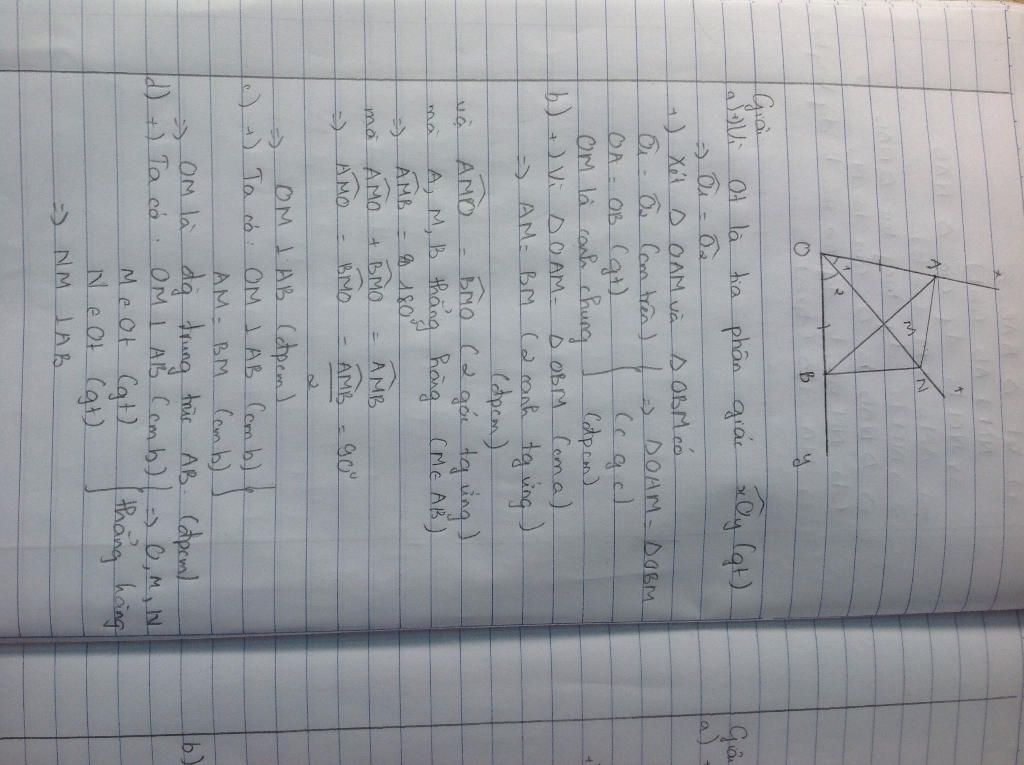 x
A
t
N
M
1
2
O
B
y
Giải
a) +) Vì Ot là tia phân giác xOy (gt)
=> Ô1 = Ô2
+) Xét Δ OAM và Δ OBM có
Ô1 = Ô2 (cm trên)
OA = OB (gt) } => ΔOAM = ΔOBM
OM là cạnh chung (c g c)
(đpcm)
b) +) Vì Δ OAM = Δ OBM (cm a)
=> AM = BM (2 cạnh tg ứng)
(đpcm)
và AMO = BMO (2 góc tg ứng)
mà A, M, B thẳng hàng (M∈AB)
=> AMB = 180°
mà AMO + BMO = AMB
=> AMO = BMO = AMB/2 = 90°
=> OM ⊥ AB (đpcm)
c) +) Ta có: OM ⊥ AB (cm b) }
AM = BM (cm b)
=> OM là đg trung trực AB. (đpcm)
d) +) Ta có: OM ⊥ AB (cm b) } => O, M, N
M ∈ Ot (gt) thẳng hàng
N ∈ Ot (gt)
=> NM ⊥ AB
Giải
a)
b)